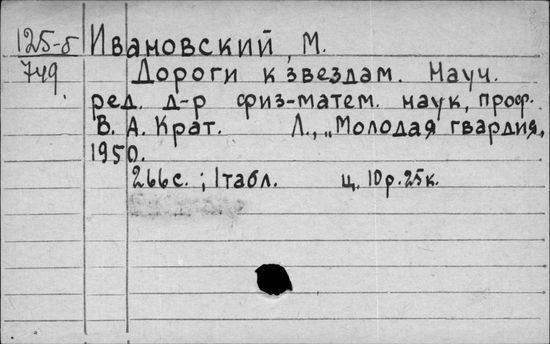 125-б Ивановский, М.
749. Дороги к звездам. Науч.
ред. д-р физ-матем. наук, проф.
В. А. Крат. Л., „Молодая гвардия,
1950.
266с. ; 1табл. ц. 10р.25к.